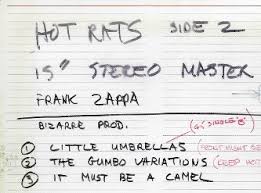 HOT RATS SIDE 2
15" STEREO MASTER
FRANK ZAPPA
BIZARRE PROD.
("G" SINGLE "B")
① LITTLE UMBRELLAS (FRONT MIGHT BE
② THE GUMBO VARIATIONS (KEEP HOT
③ IT MUST BE A CAMEL